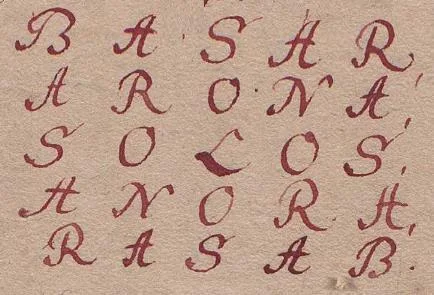 B A S A R,
A R O N A,
S O L O S,
A N O R A,
R A S A B.